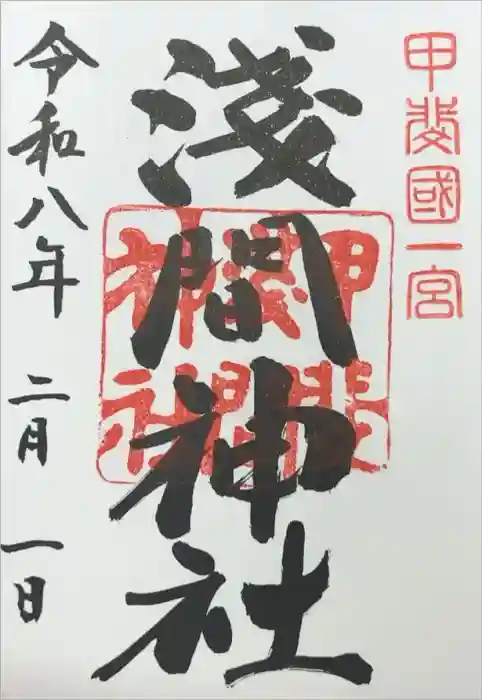 甲斐國一宮
淺間神社
甲斐
淺間
神社
令和八年 二月 一日